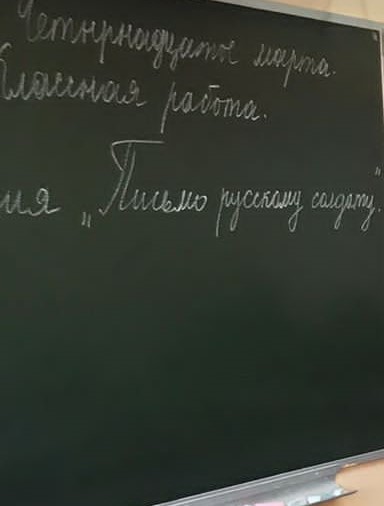 Четырнадцатое марта.
Классная работа.
ия „Письмо русскому солдату."